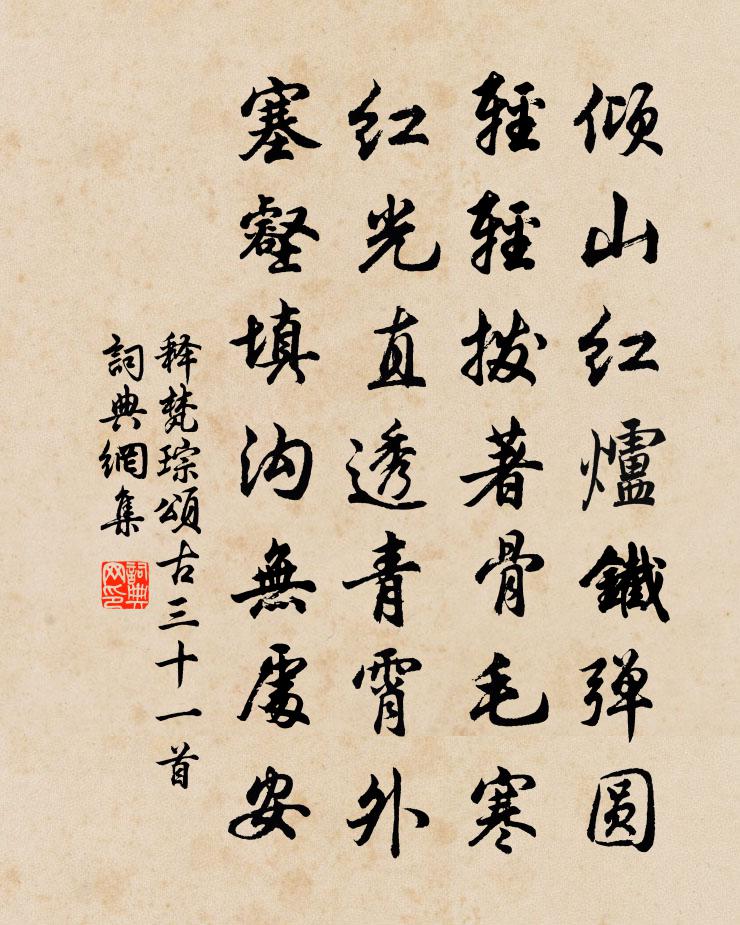 倾山红爐鐵弹圆
輕輕拨著骨毛寒
红光直透青霄外
塞壑填沟無處安
释梵琮頌古三十一首
詞典網集
詞典网印